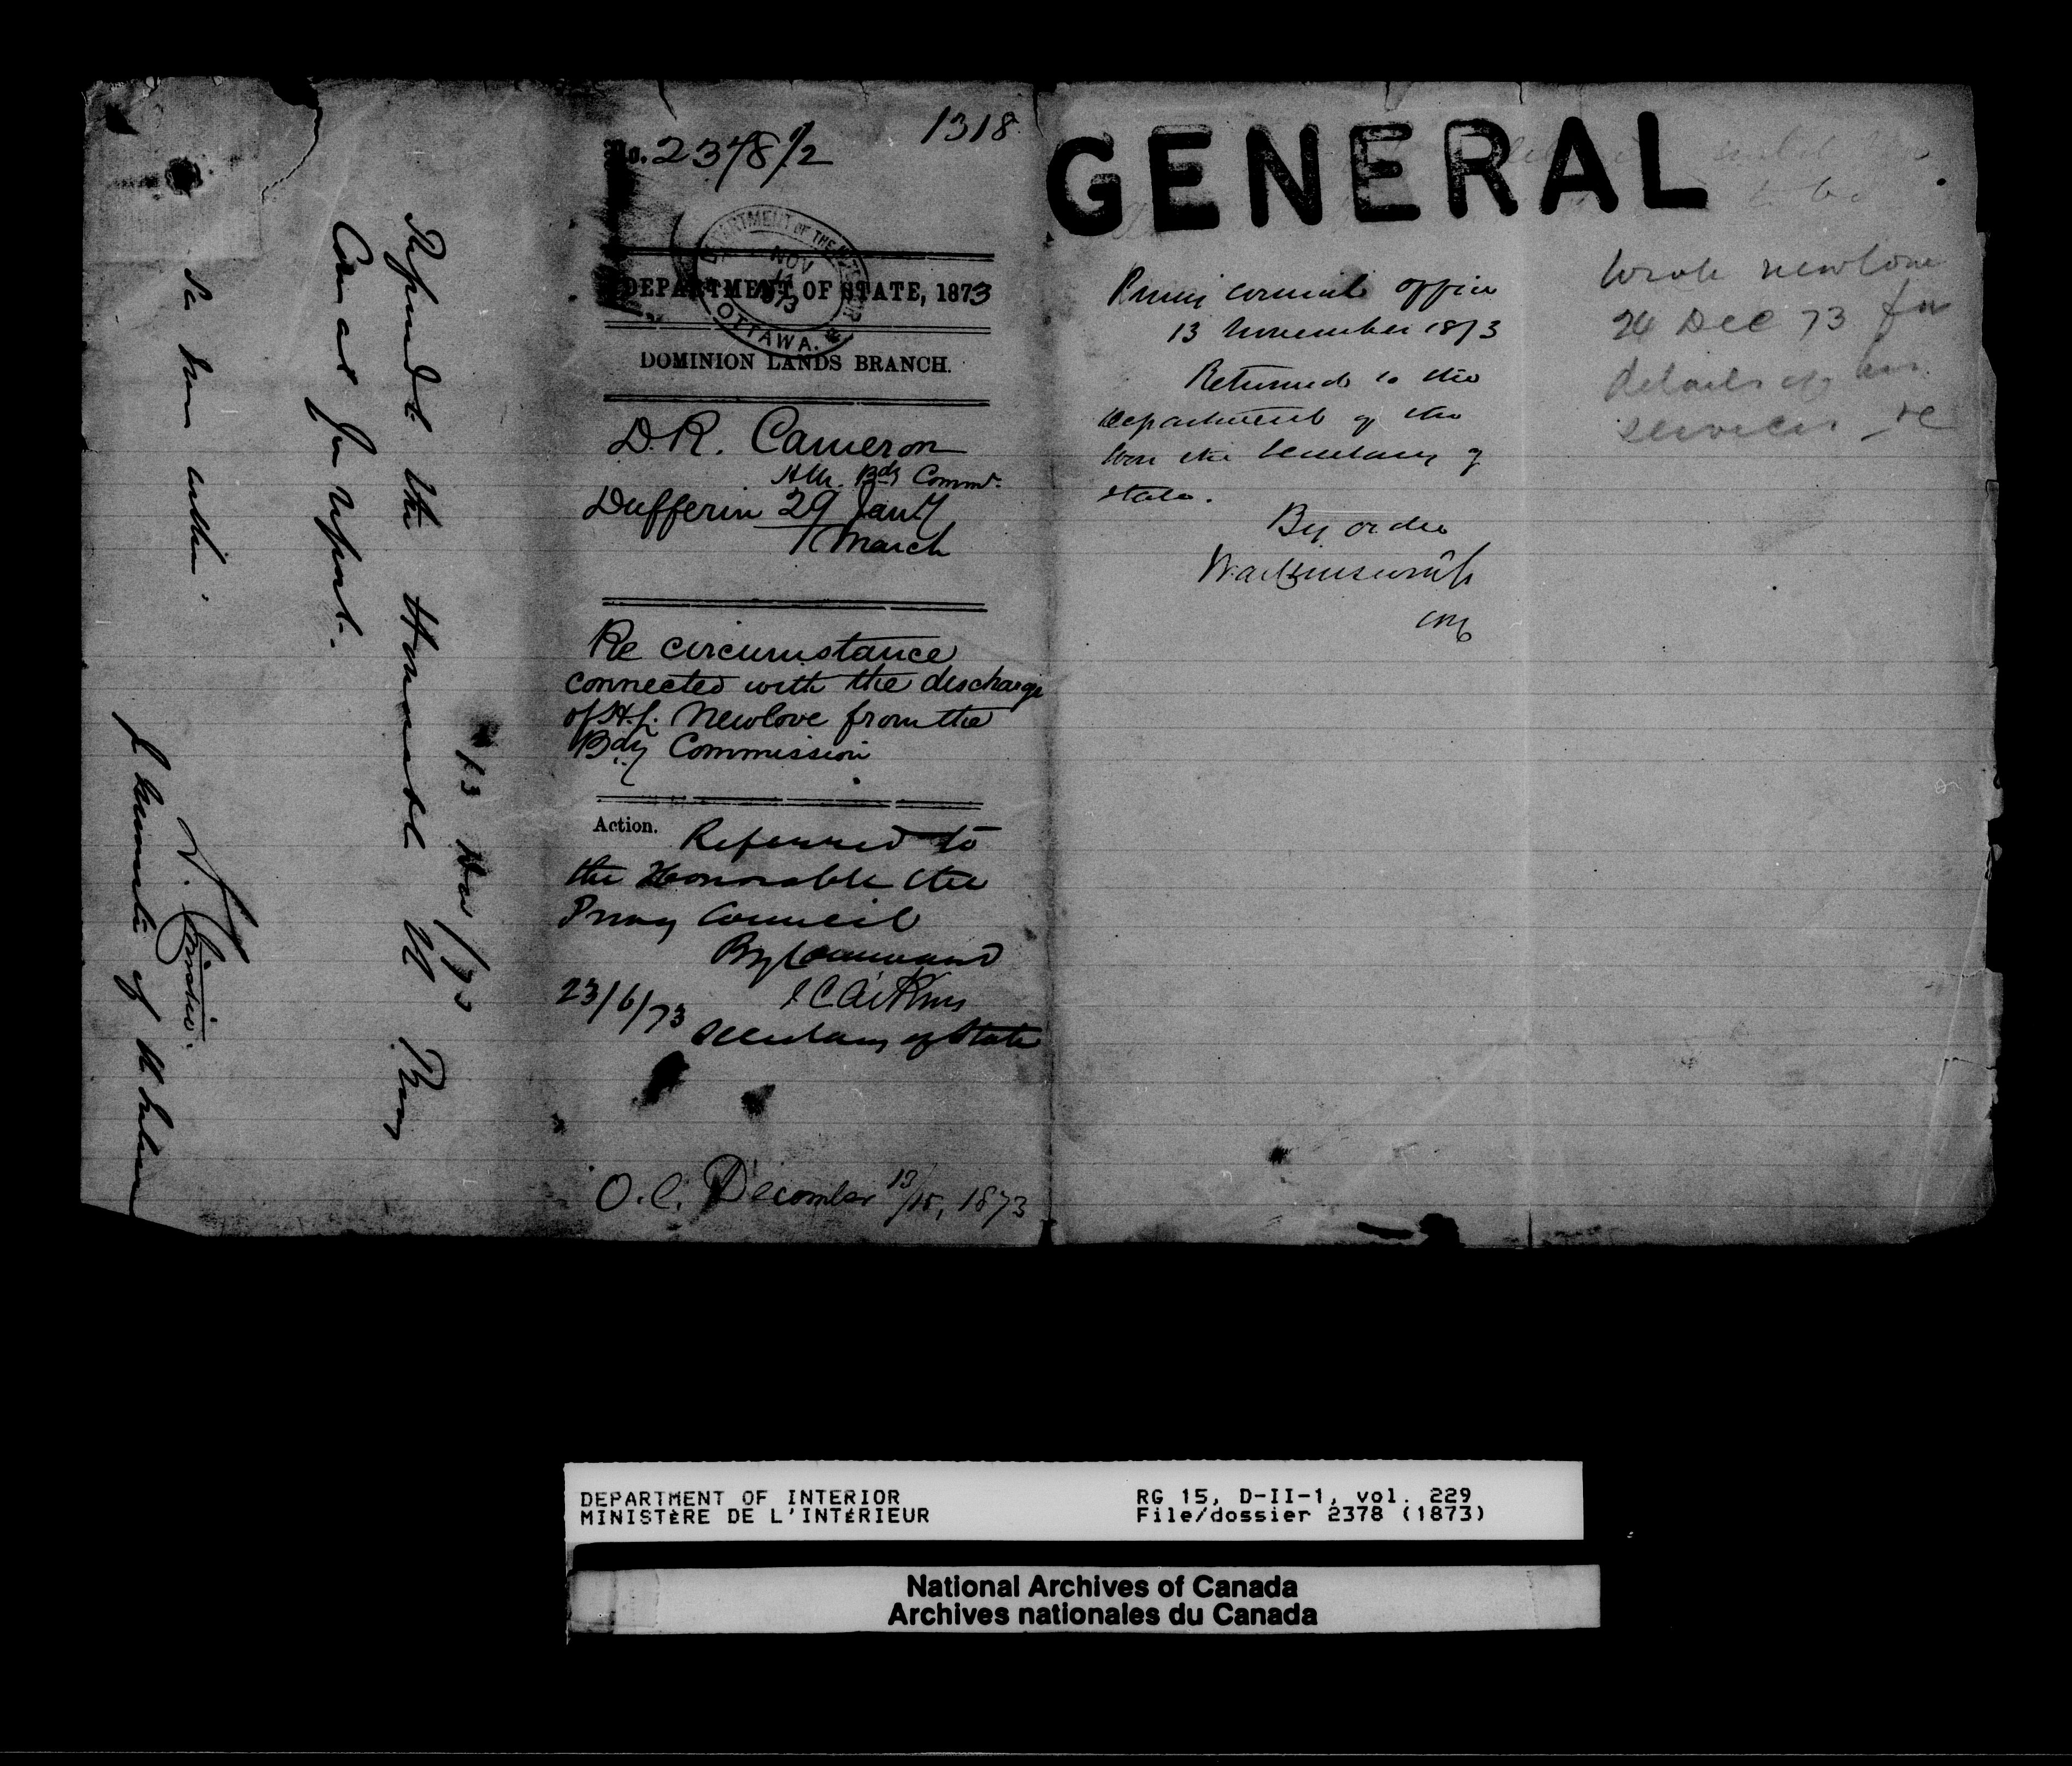 1318
No. 2378 1/2
DEPARTMENT OF THE INTERIOR
NOV
1873
OTTAWA.
DEPARTMENT OF STATE, 1873
DOMINION LANDS BRANCH.
D.R. Cameron
Bdy Commr.
Dufferin 29 Jany
1 March
Re circumstance
connected with the discharge
of H. Newlove from the
Bdy Commission
Action. Referred to
the Honorable the
Privy Council
By Command
J C Aikins
23/6/73
Secretary of State
O.C. December 13/15, 1873
13 Nov /73
Referred to the Honourable the Privy
Council for report.
See herein within.
of the Interior
GENERAL
Privy Council Office
13 November 1873
Returned to the
Department of the
Hon the Secretary of
State.
By order
Wrote Newlove
24 Dec 73 for
details of his
services
DEPARTMENT OF INTERIOR
MINISTÈRE DE L'INTÉRIEUR
RG 15, D-II-1, vol. 229
File/dossier 2378 (1873)
National Archives of Canada
Archives nationales du Canada